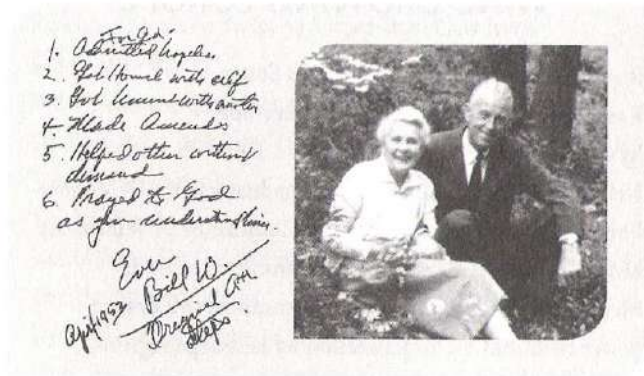 For Ed:
1. Admitted hopeless
2. Got honest with self
3. Got honest with another
4. Made Amends
5. Helped other without
demand
6. Prayed to God
as you understand Him.
Ever
Bill W.
April/1953
Original AA
Steps.